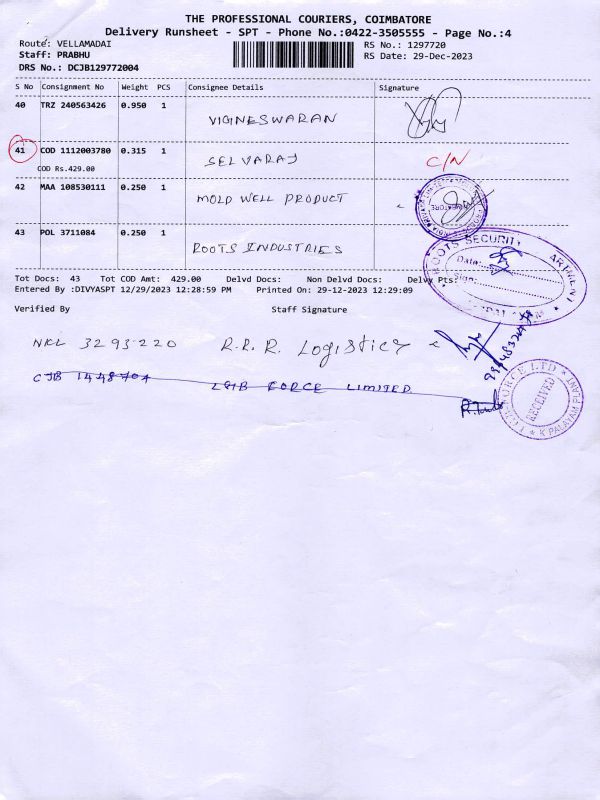 THE PROFESSIONAL COURIERS, COIMBATORE
Delivery Runsheet - SPT - Phone No.:0422-3505555 - Page No.:4
Route: VELLAMADAI
RS No.: 1297720
Staff: PRABHU
RS Date: 29-Dec-2023
DRS No.: DCJB129772004
S No Consignment No Weight PCS Consignee Details Signature
40 TRZ 240563426 0.950 1 VIGINESWARAN
41 COD 1112003780 0.315 1 SELVARAJ C/N
COD Rs.429.00
42 MAA 108530111 0.250 1 MOLD WELL PRODUCT
43 POL 3711084 0.250 1 ROOTS INDUSTRIES
ROOTS SECURITY
Date:
Sign:
Tot Docs: 43 Tot COD Amt: 429.00 Delvd Docs: Non Delvd Docs: Delvy Pts:
Entered By :DIVYASPT 12/29/2023 12:28:59 PM Printed On: 29-12-2023 12:29:09
Verified By Staff Signature
NKL 3293220 R.R.R. Logistics
CJB 1448704 LGB FORCE LIMITED
RECEIVED
K PALAYAM PLANT